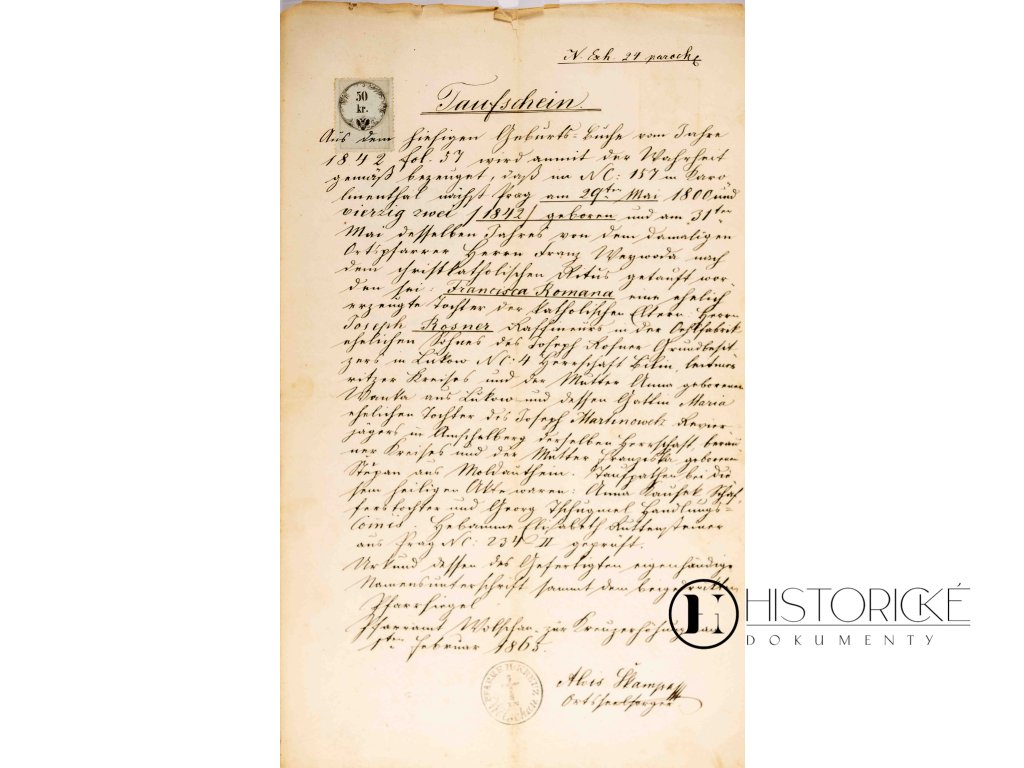 N. Exh. 24 paroch
50
kr.
Taufschein.
Aus dem hiesigen Geburts-Buche vom Jahre
1842 fol. 57 wird anmit der Wahrheit
gemäß bezeuget, daß in NC: 157 in Karo-
linenthal nächst Prag am 29ten Mai 1800 und
vierzig zwei /1842/ geboren und am 31ten
Mai desselben Jahres von dem damaligen
Ortspfarrer Herrn Franz Weywoda nach
dem christkatholischen Ritus getauft wor-
den sei: Francisca Romana eine ehelich
erzeugte Tochter der katholischen Eltern: Herrn
Joseph Rosner Raffineurs in der Oehlfabrik
ehelichen Sohnes des Joseph Rosner Grundbesit-
zers in Lukow NC: 4 Herrschaft Bilin, leitme-
ritzer Kreises und der Mutter Anna geborenen
Wanka aus Lukow und dessen Gattin Maria
ehelichen Tochter des Joseph Martinowek Revier-
jägers in Amschelberg derselben Herrschaft, berau-
ner Kreises und der Mutter Franziska geborenen
Stěpan aus Moldauthein. Taufpathen bei die-
sem heiligen Akte waren: Anna Schäf-
ferstochter und Georg Handlungs-
Comis. Hebamme Elisabeth Ruttensteiner
aus Prag NC: 234 II geprüft.
Urkund dessen des Gefertigten eigenhändige
Namensunterschrift sammt dem beigedrückten
Pfarrsiegel
Pfarramt Wolschan zur Kreuzerhöhung am
1ten Februar 1865.
Alois
Ortsseelsorger
HISTORICKÉ
DOKUMENTY